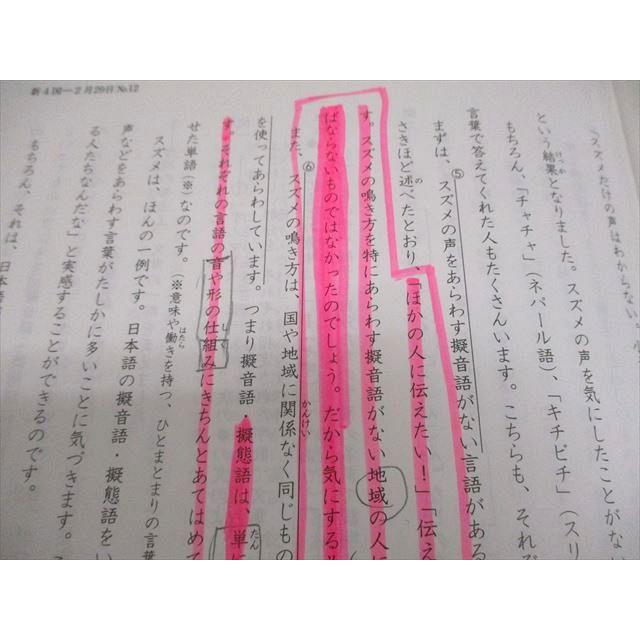 新4国―2月29日 No.12
「スズメだけの声はわからない。
という結果となりました。スズメの声を気にしたことがない
もちろん、「チャチャ」(ネパール語)、「キチピチ」(スリ
言葉で答えてくれた人もたくさんいます。こちらも、それぞ
⑤
まずは、スズメの声をあらわす擬音語がない言語がある
さきほど述べたとおり、「ほかの人に伝えたい!」「伝え
す。スズメの鳴き方を特にあらわす擬音語がない地域の人に
ばならないものではなかったのでしょう。だから気にする
⑥
また、スズメの鳴き方は、国や地域に関係なく同じもの
を使ってあらわしています。つまり擬音語・擬態語は、単に
す。それぞれの言語の音や形の仕組みにきちんとあてはめて
せた単語(※)なのです。(※意味や働きを持つ、ひとまとまりの言葉
スズメは、ほんの一例です。日本語の擬音語・擬態語をい
声などをあらわす言葉がたしかに多いことに気づきます。
る人たちなんだな」と実感することができるのです。
もちろん、それは、日本語